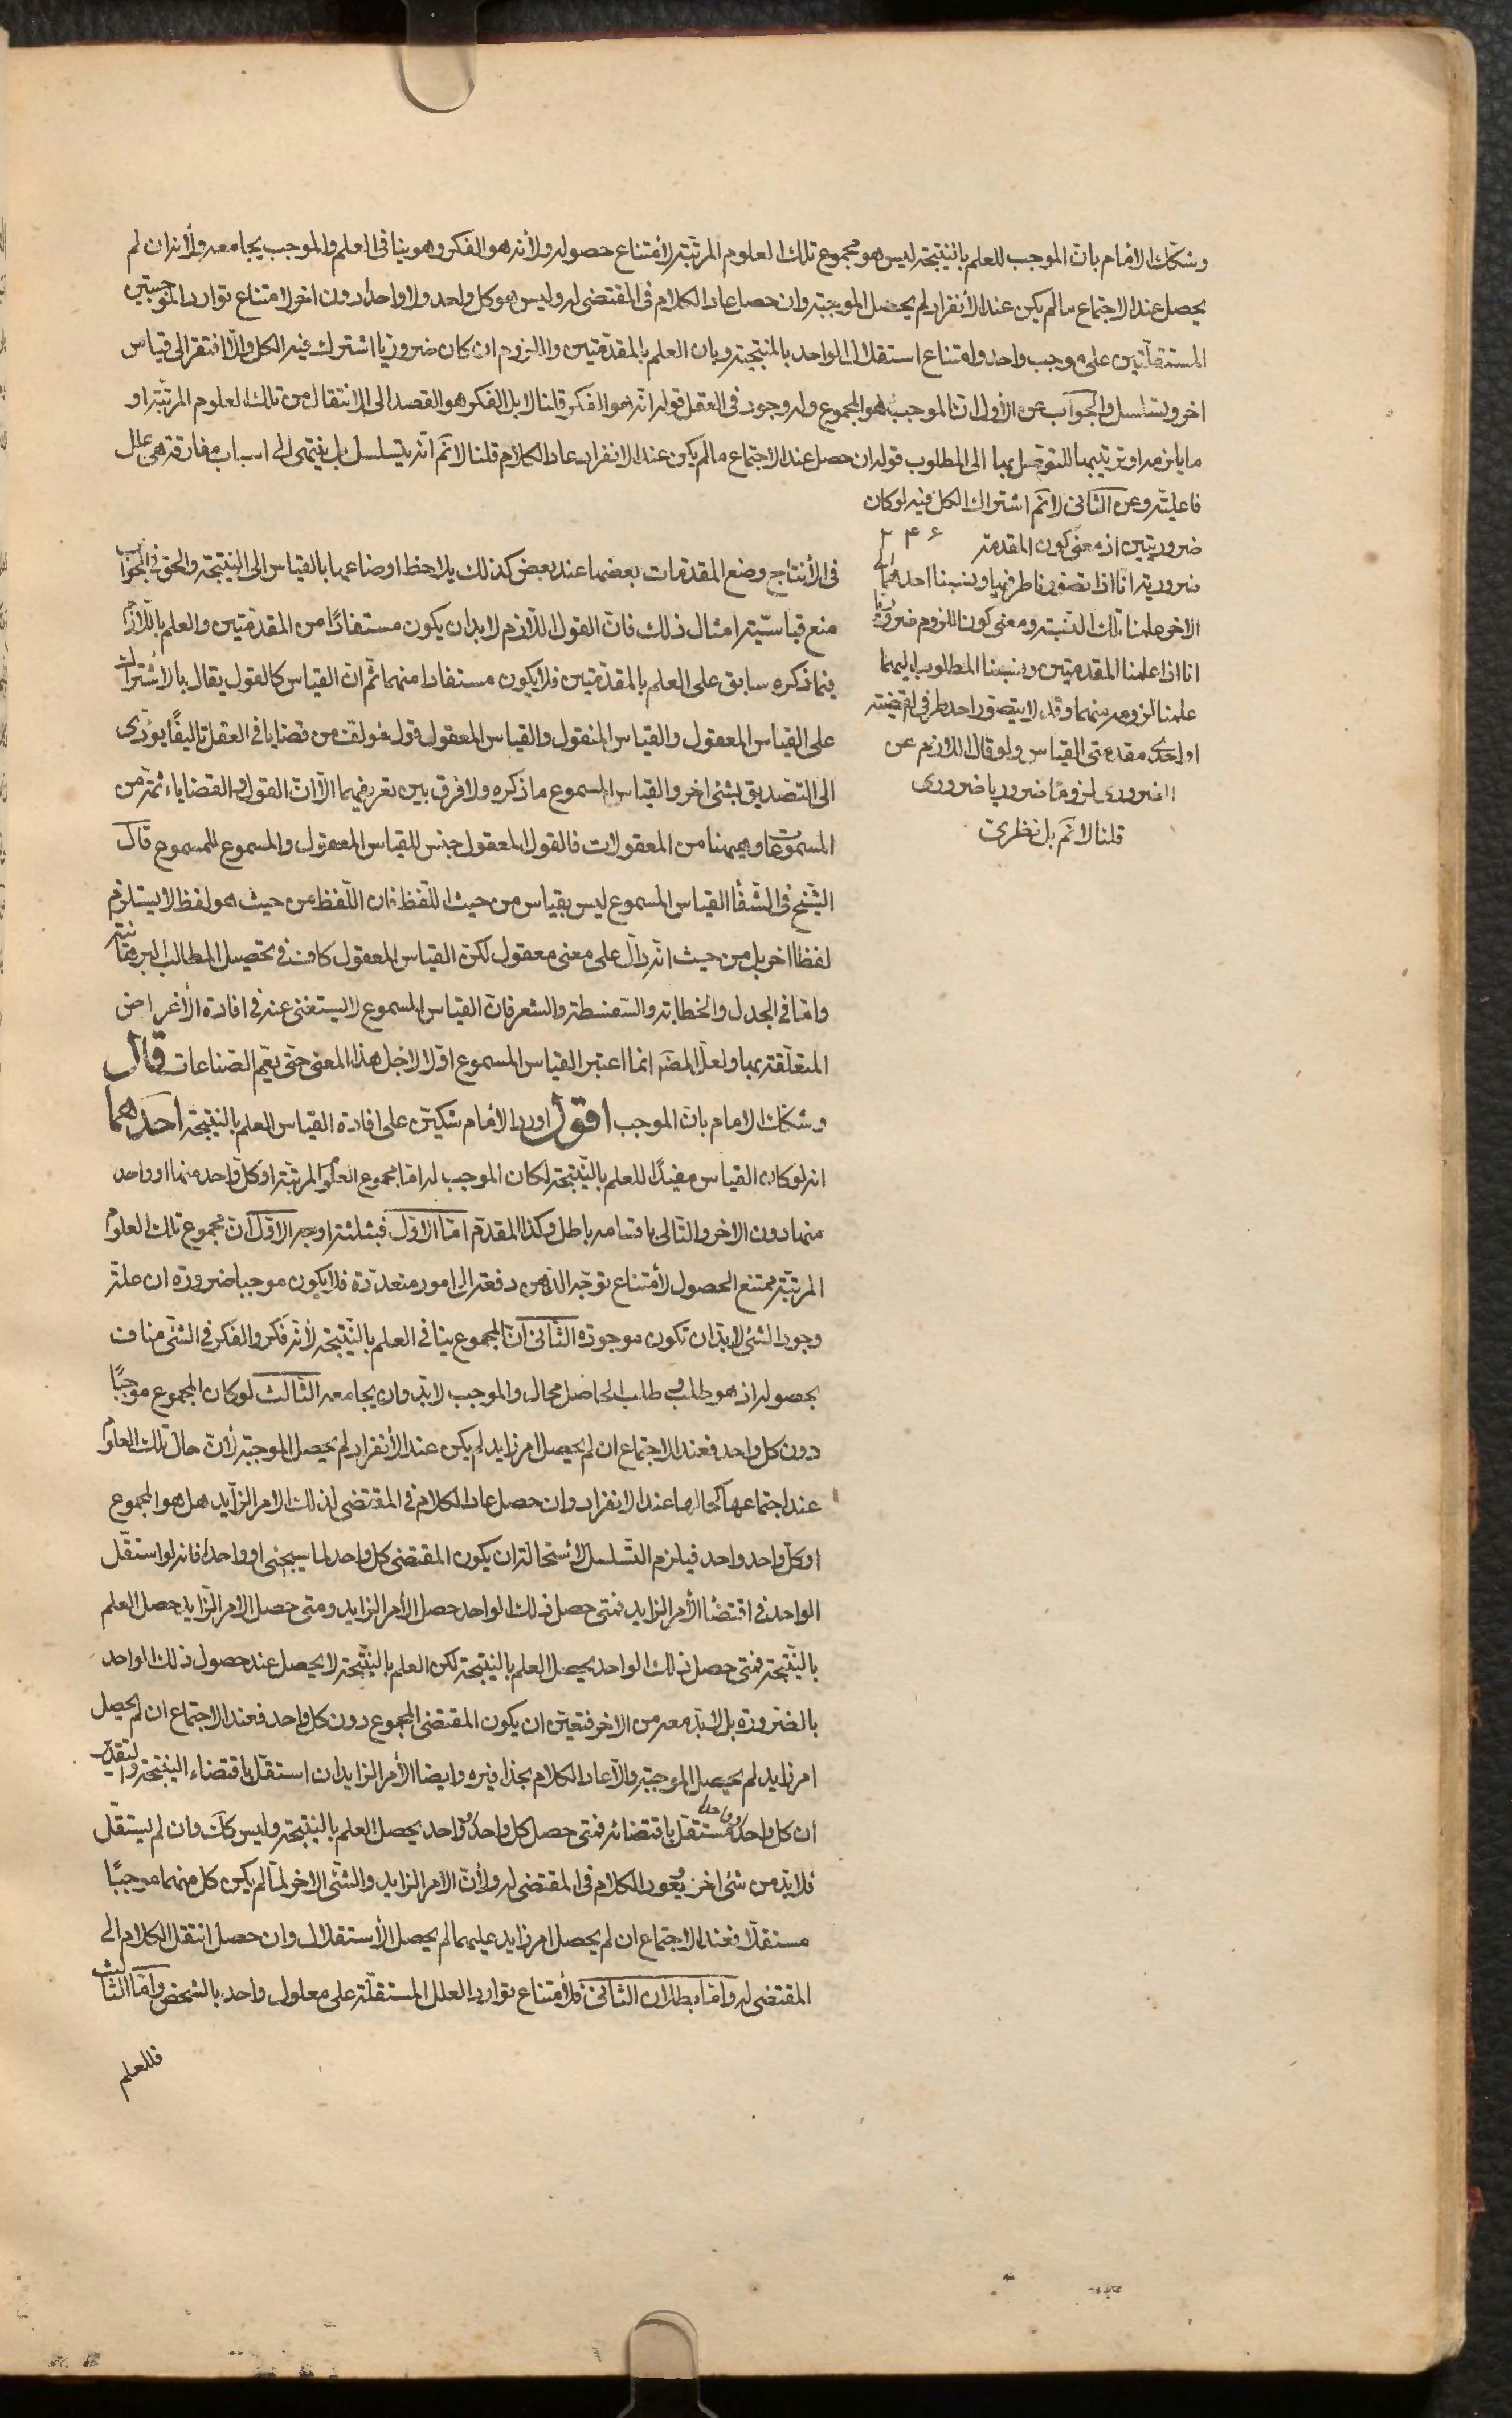 وشكّك الامام بان الموجب للعلم بالنتيجة ليس هو مجموع تلك العلوم المرتّبة لأمتناع حصوله ولأنه هو الفكر وهو ينافى العلم والموجب يجامعه ولأنه ان لم
يحصل عند الاجتماع مالم يكن عند الأنفراد لم يحصل الموجبة وان حصل عاد الكلام فى المقتضى له وليس هو كل واحد ولا واحدا دون اخر لامتناع توارد الموجبتين
المستقلّتين على موجب واحد وامتناع استقلال الواحد بالمنتجية وبان العلم بالمقدّمتين واللزوم ان كان ضروريا اشترك فيه الكل والّا افتقر الى قياس
اخر وتسلسل والجواب عن الأول ان الموجب هو المجموع وله وجود فى العقل قوله انّه هو الفكر قلنا لا بل الفكر هو القصد الى الانتقال من تلك العلوم المرتّبة او
مايلزمه او ترتيبها للتوصّل بها الى المطلوب قوله ان حصل عند الاجتماع مالم يكن عند الانفراد عاد الكلام قلنا لانم انّه يتسلسل بل ينتهى الى اسباب مفارقة هى علل
فاعلية وعن الثانى لانم اشتراك الكل فيه لو كان
ضروريتين اذ معنى كون المقدمة
ضرورية انّا اذا تصورنا طرفيها ونسبنا احدهما الى
الاخر علمنا تلك النسبة ومعنى كون اللزوم ضروريا
انا اذا علمنا المقدمتين ونسبنا المطلوب اليهما
علمنا لزومه منهما وقد لا يتصور احد طرفى القضية
او احدى مقدمتى القياس ولو قال اللازم عن
الضرورى لزوما ضروريا ضرورى
قلنا لانم بل نظرى
٢٤٦
فى الأنتاج وضع المقدمات بعضها عند بعض كذلك يلاحظ اوضاعها بالقياس الى النتيجة والحق فى الجواب
منع قياسيّة امثال ذلك فانّ القول اللّازم لابد ان يكون مستفادًا من المقدّمتين والعلم باللّازم
فيما ذكره سابق على العلم بالمقدّمتين فلا يكون مستفادا منهما ثم انّ القياس كالقول يقال بالاشتراك
على القياس المعقول والقياس المنقول والقياس المعقول قول مؤلف من قضايا فى العقل تاليفًا يؤدّى
الى التصديق بشئ اخر والقياس المسموع ما ذكره ولا فرق بين تعريفيهما الّا ان القول والقضايا ثمّة من
المسموعات وهيهنا من المعقولات فالقول المعقول جنس للقياس المعقول والمسموع للمسموع قال
الشّيخ فى الشّفا القياس المسموع ليس بقياس من حيث اللّفظ فان اللّفظ من حيث هو لفظ لا يستلزم
لفظا اخر بل من حيث انّه دالّ على معنى معقول لكن القياس المعقول كاف فى تحصيل المطالب البرهانية
وامّا فى الجدل والخطابة والسّفسطة والشعر فان القياس المسموع لا يستغنى عنه فى افادة الأغراض
المتعلّقة بها ولعلّ المصّ انما اعتبر القياس المسموع اوّلا لاجل هذا المعنى حتّى يعّم الصّناعات قال
وشكك الامام بان الموجب اقول اورد الأمام شكّين على افادة القياس العلم بالنتيجة احدهما
انه لو كان القياس مفيدًا للعلم بالنّتيجة لكان الموجب له امّا مجموع العلوم المرتّبة او كلّ واحد منها او واحد
منها دون الاخر والتالى باقسامه باطل وكذا المقدّم امّا الاوّل فبثلثة اوجه الاوّل انّ مجموع تلك العلوم
المرتّبة ممتنع الحصول لأمتناع توجّه الذّهن دفعة الى امور متعددّة فلا يكون موجبا ضرورة ان علّة
وجود الشئ لابدّ ان تكون موجودة الثّانى انّ المجموع ينافى العلم بالنّتيجة لأنّه فكر والفكر فى الشّئ مناف
بحصوله اذ هو طلب وطلب الحاصل محال والموجب لابدّ وان يجامعه الثّالث لو كان المجموع موجبًا
دون كل واحد فعند الاجتماع ان لم يحصل امر زايد لم يكن عند الأنفراد لم يحصل الموجبة لأنّ حال تلك العلوم
عند اجتماعها كحالها عند الانفراد وان حصل عاد الكلام فى المقتضى لذلك الامر الزّايد هل هو المجموع
او كلّ واحد واحد فيلزم التّسلسل لاستحالة ان يكون المقتضى كل واحد لما سيجئ او واحدا فانّه لو استقّل
الواحد فى اقتضا الأمر الزايد فمتى حصل ذلك الواحد حصل الأمر الزايد ومتى حصل الامر الزّايد حصل العلم
بالنّتيجة فمتى حصل ذلك الواحد يحصل العلم بالنتيجة لكن العلم بالنتّيجة لا يحصل عند حصول ذلك الواحد
بالضرورة بل لابدّ معه من الاخر فتعيّن ان يكون المقتضى المجموع دون كل واحد فعند الاجتماع ان لم يحصل
امر زايد لم يحصل الموجبة والّا عاد الكلام بحذافيره وايضا الأمر الزايد ان استقّل باقتضاء النتيجة والتقدير
ان كل واحد واحد مستقّل باقتضائه فمتى حصل كل واحد واحد يحصل العلم بالنتيجة وليس كك وان لم يستقّل
فلابد من شئ اخر ويعود الكلام فى المقتضى له ولأنّ الامر الزايد والشّئ الاخر لمّا لم يكن كل منهما موجبًا
مستقلّا فعند الاجتماع ان لم يحصل امر زايد عليهما لم يحصل الأستقلال وان حصل انتقل الكلام الى
المقتضى له وامّا بطلان الثّانى فلأمتناع توارد العلل المستقلّة على معلول واحد بالشخص وامّا الثّالث
فللعلم